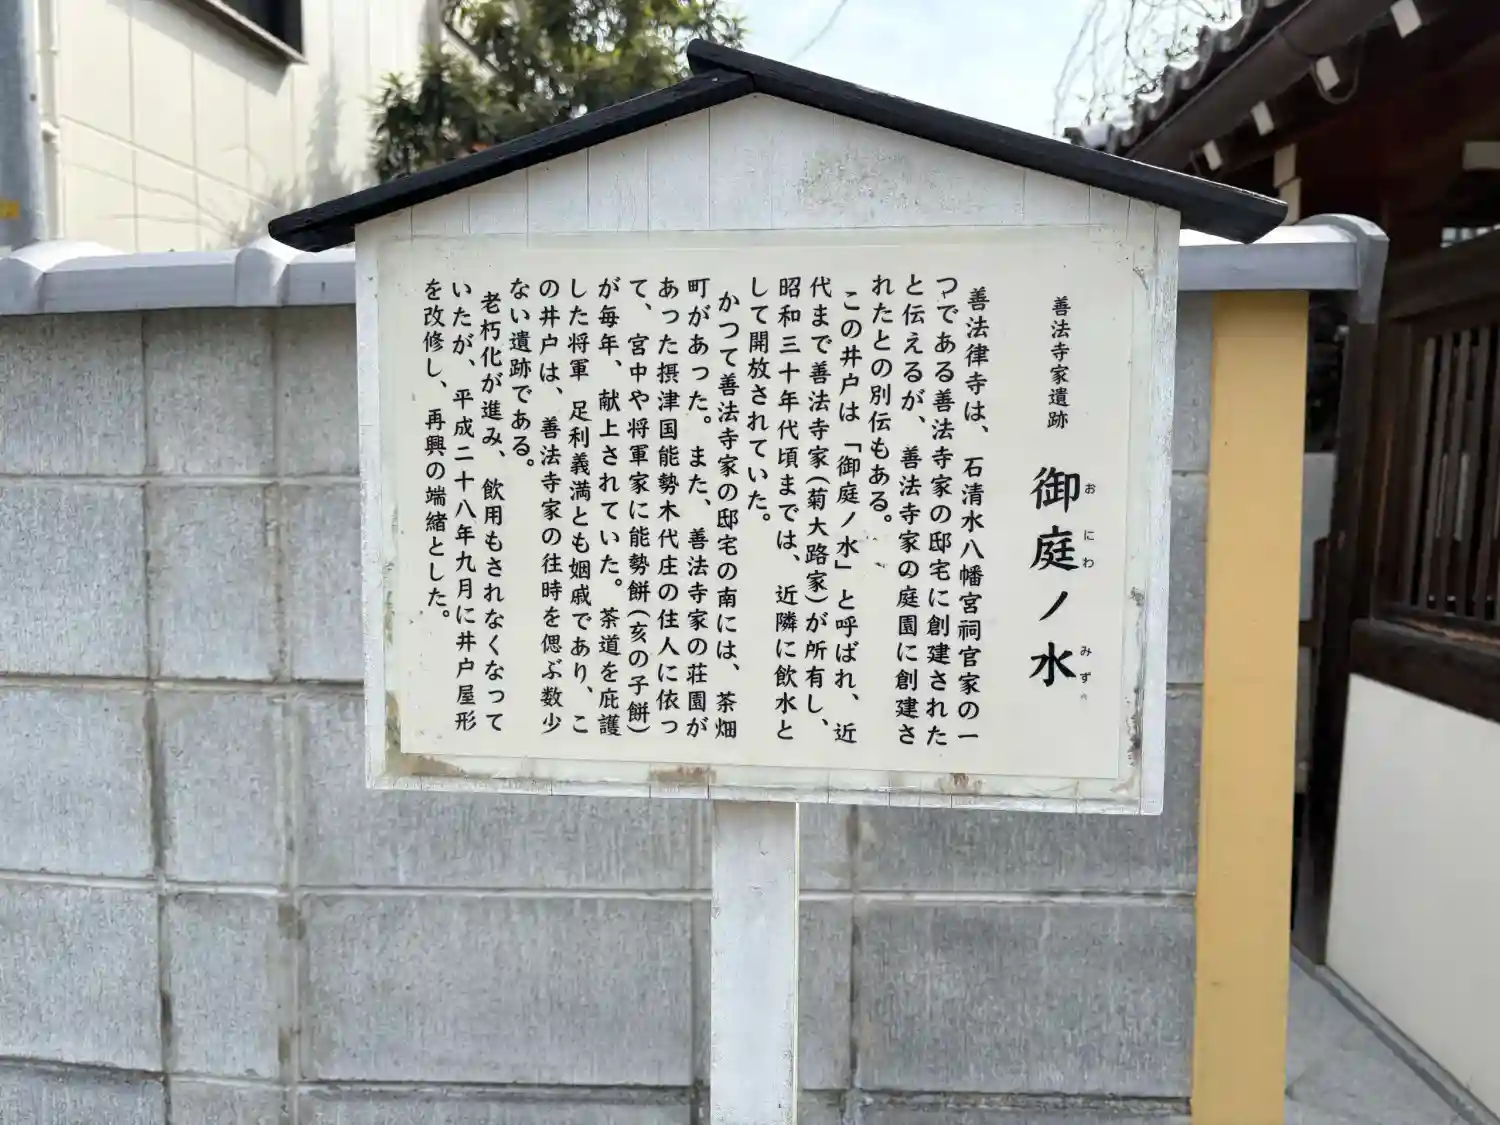 善法寺家遺跡
御庭ノ水
おにわ みず
善法律寺は、石清水八幡宮祠官家の一
つである善法寺家の邸宅に創建された
と伝えるが、善法寺家の庭園に創建さ
れたとの別伝もある。
この井戸は「御庭ノ水」と呼ばれ、近
代まで善法寺家(菊大路家)が所有し、
昭和三十年代頃までは、近隣に飲水と
して開放されていた。
かつて善法寺家の邸宅の南には、茶畑
町があった。また、善法寺家の荘園が
あった摂津国能勢木代庄の住人に依っ
て、宮中や将軍家に能勢餅(亥の子餅)
が毎年、献上されていた。茶道を庇護
した将軍 足利義満とも姻戚であり、こ
の井戸は、善法寺家の往時を偲ぶ数少
ない遺跡である。
老朽化が進み、飲用もされなくなって
いたが、平成二十八年九月に井戸屋形
を改修し、再興の端緒とした。